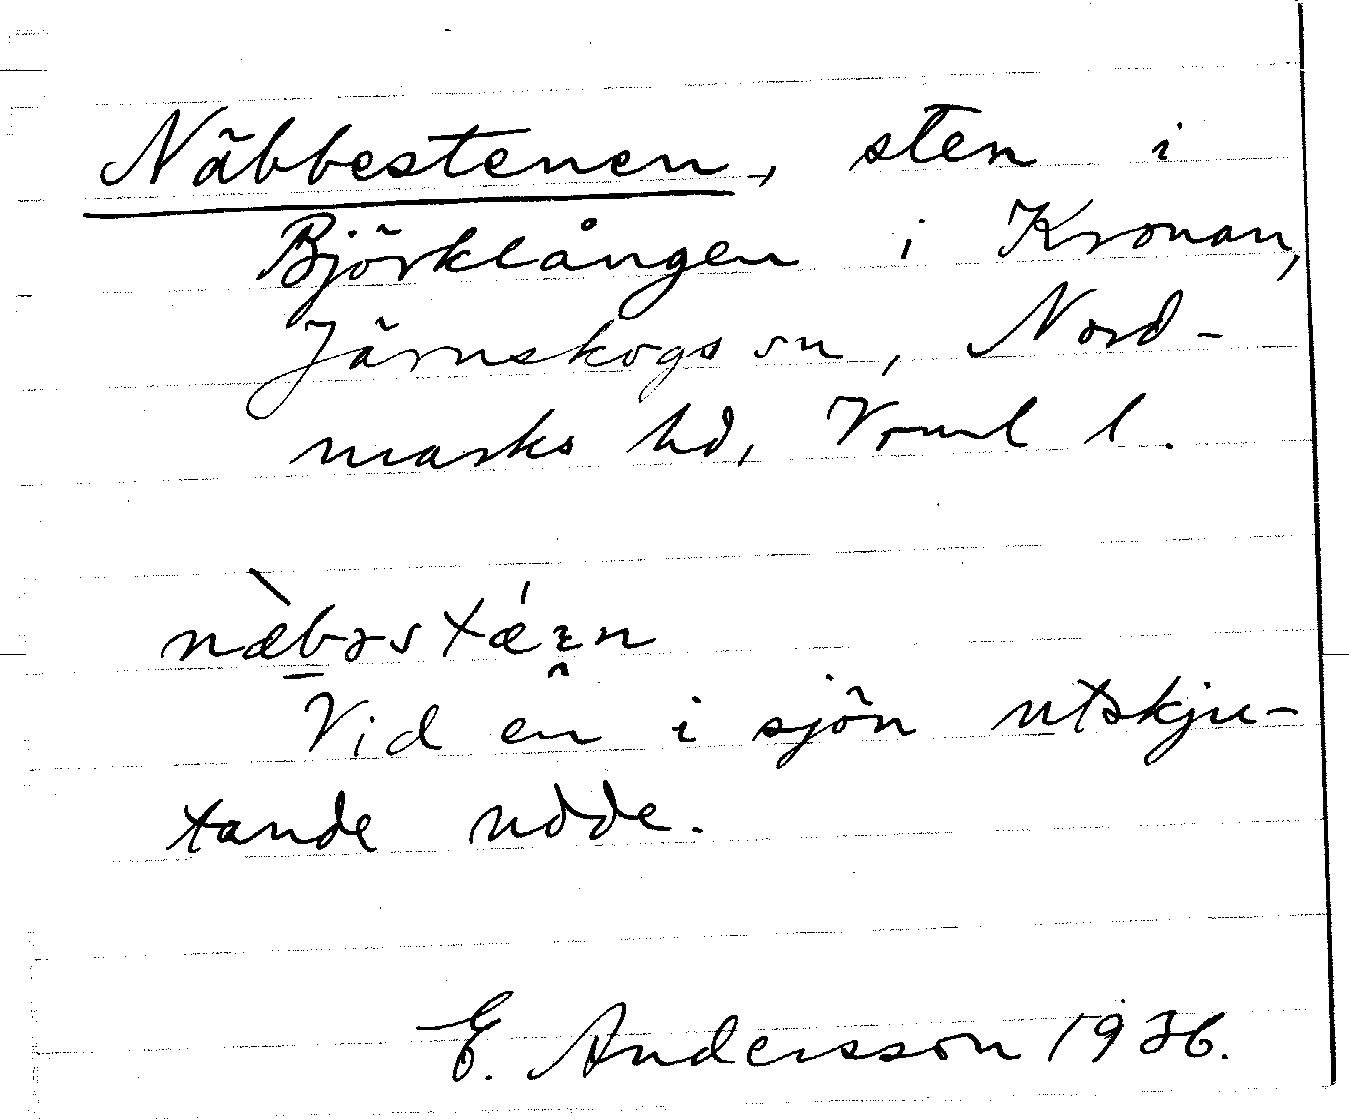 Näbbestenen, sten i
Björklången i Kronan,
Järnskogs sn, Nord-
marks hd, Vrml l.
næ̀bəstǽɛn
Vid en i sjön utskju-
tande udde.
E. Andersson 1936.